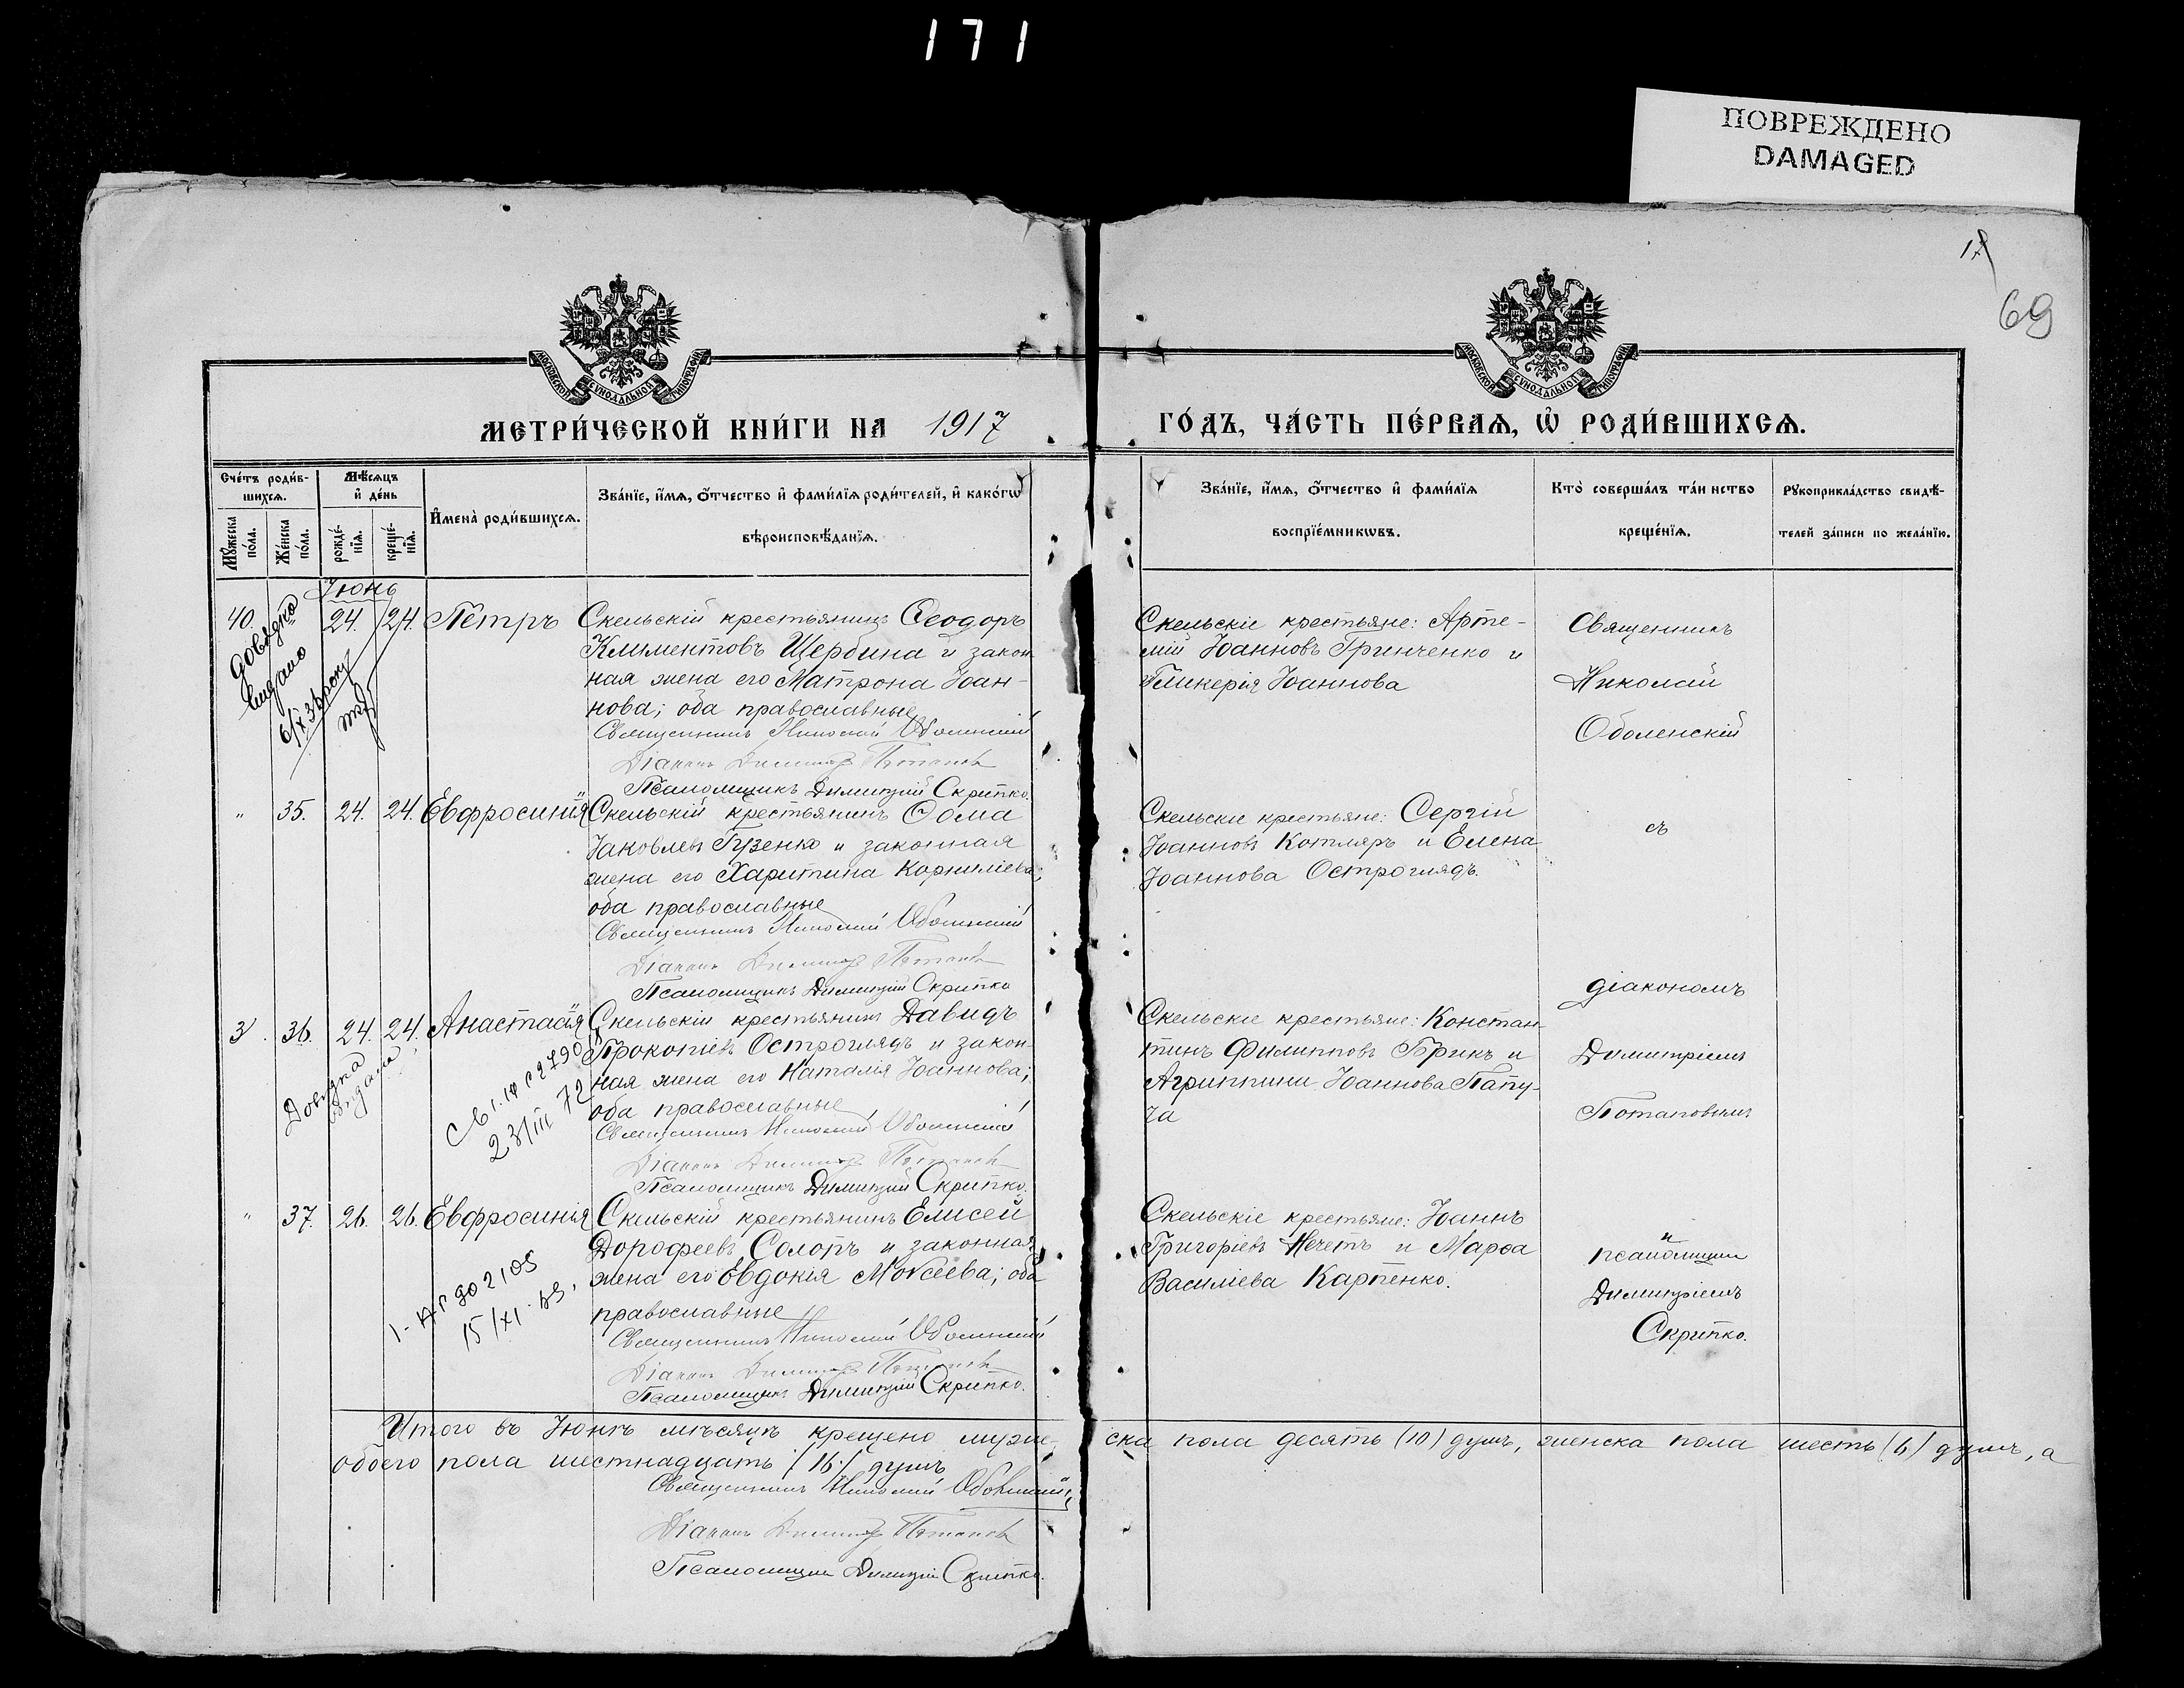 171
ПОВРЕЖДЕНО
DAMAGED
17
69
МОСКОВСКОЙ СѴНОДАЛЬНОЙ ТИПОГРАФІИ
МОСКОВСКОЙ СѴНОДАЛЬНОЙ ТИПОГРАФІИ
МЕТРИ́ЧЕСКОЙ КНИ́ГИ НА 1917 ГО́ДЪ, ЧА́СТЬ ПЕ́РВАѦ, Ѡ҆ РОДИ́ВШИХСѦ.
Сче́тъ роди́в-
шихсѧ.
Мѣ́сѧцъ
и҆ де́нь
Мꙋ́жеска
по́ла.
Же́нска
по́ла.
рожде́-
нїѧ.
креще́-
нїѧ.
И҆мена̀ роди́вшихсѧ.
Зва́нїе, и҆́мѧ, ѻ҆́тчество и҆ фами́лїѧ роди́телей, и҆ како́гѡ
вѣроисповѣ́данїѧ.
Зва́нїе, и҆́мѧ, ѻ҆́тчество и҆ фами́лїѧ
воспрїе́мникѡвъ.
Кто̀ соверша́лъ та́инство
креще́нїѧ.
Рꙋкоприкла́дство свидѣ́-
телей за́писи по жела́нїю.
Іюнь
40. 24. 24. Петръ Скельскій крестьянинъ Ѳеодоръ
Климентовъ Щербина и закон-
ная жена его Матрона Іоан-
нова; оба православные
Священникъ Николай Оболенскій
Діаконъ Димитрій Потаповъ
Псаломщикъ Димитрій Скрипко.
Скельскіе крестьяне: Арте-
мій Іоанновъ Гринченко и
Гликерія Іоаннова
Священникъ
Николай
Оболенскій
довідка
видано
" 35. 24. 24. Евфросинія Скельскій крестьянинъ Ѳома
Іаковлевъ Гузенко и законная
жена его Харитина Корниліева;
оба православные
Священникъ Николай Оболенскій
Діаконъ Димитрій Потаповъ
Псаломщикъ Димитрій Скрипко
Скельскіе крестьяне: Сергій
Іоанновъ Котляръ и Елена
Іоаннова Остроглядъ.
съ
діакономъ
3 36. 24. 24. Анастасія Скельскій крестьянинъ Давидъ
Прокопіевъ Остроглядъ и закон-
ная жена его Наталія Іоаннова;
оба православные
Священникъ Николай Оболенскій
Діаконъ Димитрій Потаповъ
Псаломщикъ Димитрій Скрипко.
Скельскіе крестьяне: Констан-
тинъ Филипповъ Брикъ и
Агриппина Іоаннова Папу-
ча
Димитріемъ
Потаповымъ
Довідка
видана
23/III 72
" 37. 26. 26. Евфросинія Скельскій крестьянинъ Елисей
Дорофеевъ Солопъ и законная
жена его Евдокія Моѵсеева; оба
православные
Священникъ Николай Оболенскій
Діаконъ Димитрій Потаповъ
Псаломщикъ Димитрій Скрипко.
Скельскіе крестьяне: Іоаннъ
Григоріевъ Нечетъ и Марѳа
Василіева Карпенко.
и
псаломщик
Димитріемъ
Скрипко.
Итого въ Іюнѣ мѣсяцѣ крещено муже- ска пола десять (10) душъ, женска пола шесть (6) душъ, а
обоего пола шестнадцать (16) душъ
Священникъ Николай Оболенскій
Діаконъ Димитрій Потаповъ
Псаломщик Димитрій Скрипко.